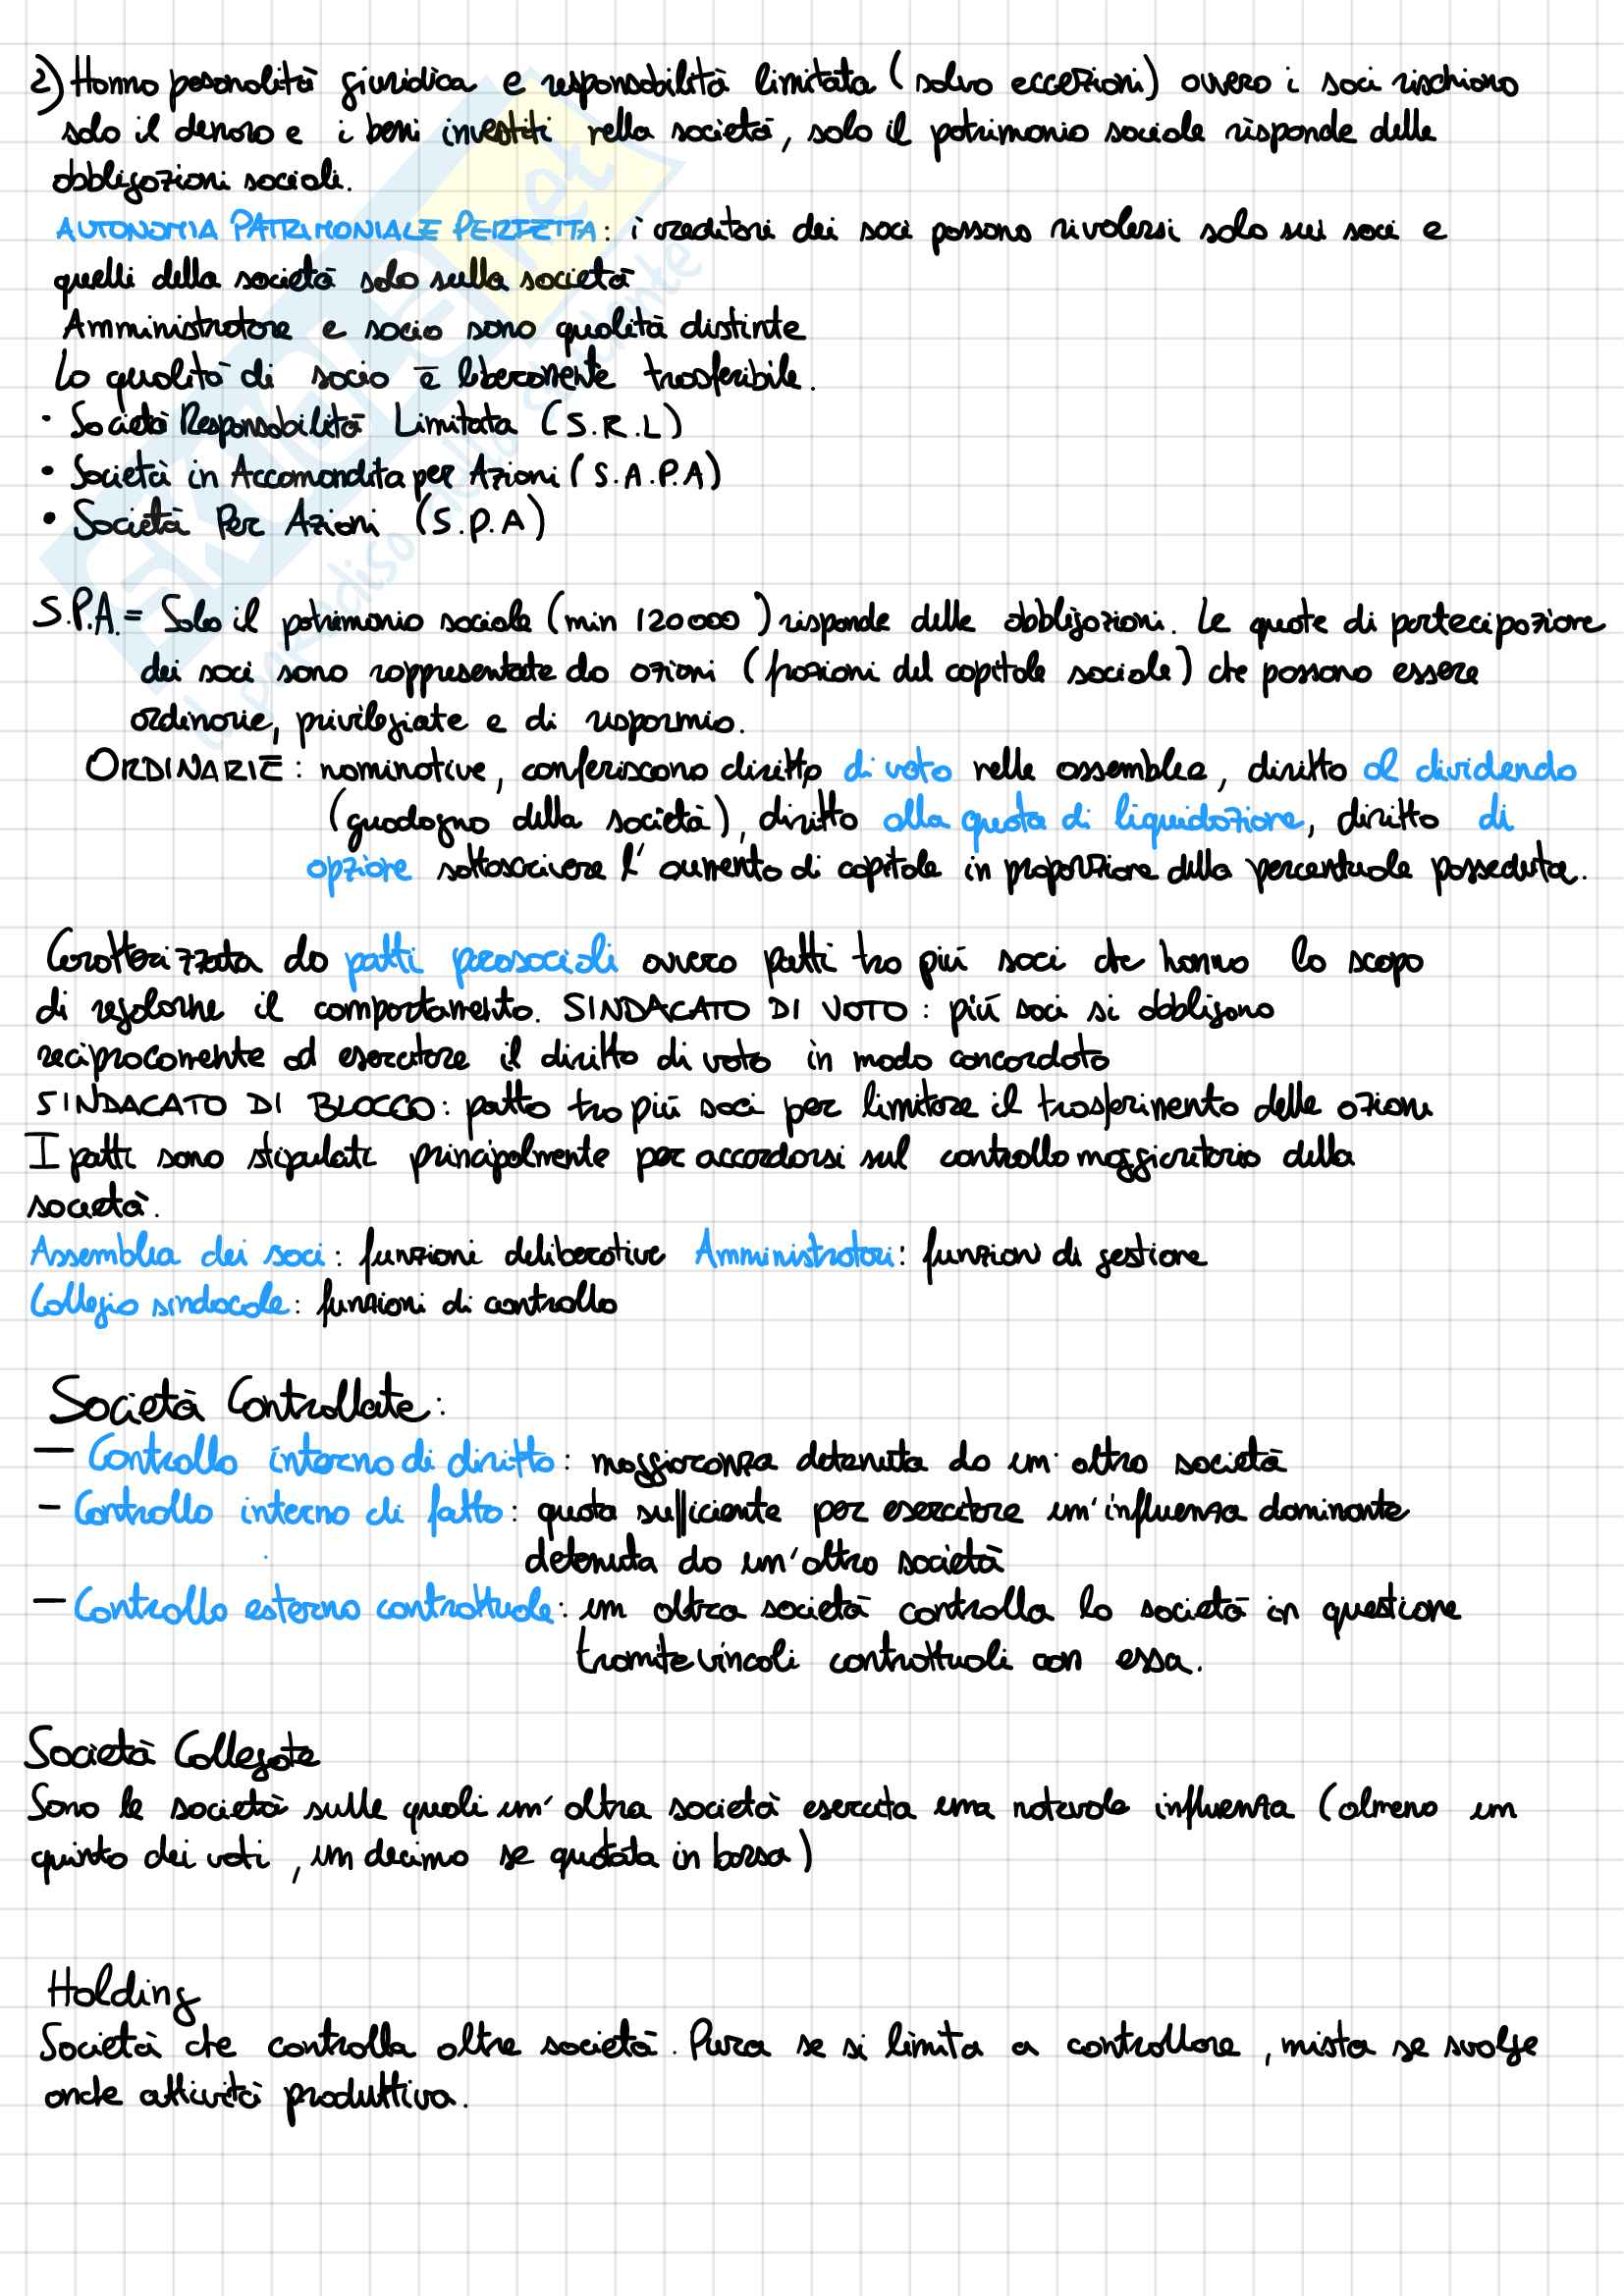 2) Hanno personalità giuridica e responsabilità limitata (salvo eccezioni) ovvero i soci rischiano
solo il denaro e i beni investiti nella società, solo il patrimonio sociale risponde delle
obbligazioni sociali.
AUTONOMIA PATRIMONIALE PERFETTA: i creditori dei soci possono rivolersi solo sui soci e
quelli della società solo sulla società
Amministratore e socio sono qualità distinte
La qualità di socio è liberamente trasferibile.
• Società Responsabilità Limitata (S.R.L)
• Società in Accomandita per Azioni (S.A.P.A)
• Società Per Azioni (S.P.A)
S.P.A. = Solo il patrimonio sociale (min 120000) risponde delle obbligazioni. Le quote di partecipazione
dei soci sono rappresentate da azioni (frazioni del capitale sociale) che possono essere
ordinarie, privilegiate e di risparmio.
ORDINARIE: nominative, conferiscono diritto di voto nelle assemblee, diritto al dividendo
(guadagno della società), diritto alla quota di liquidazione, diritto di
opzione sottoscrivere l'aumento di capitale in proporzione della percentuale posseduta.
Caratterizzata da patti parasociali ovvero patti tra più soci che hanno lo scopo
di regolarne il comportamento. SINDACATO DI VOTO: più soci si obbligano
reciprocamente ad esercitare il diritto di voto in modo concordato
SINDACATO DI BLOCCO: patto tra più soci per limitare il trasferimento delle azioni
I patti sono stipulati principalmente per accordarsi sul controllo maggioritario della
società.
Assemblea dei soci: funzioni deliberative Amministratori: funzioni di gestione
Collegio sindacale: funzioni di controllo
Società Controllate:
— Controllo interno di diritto: maggioranza detenuta da un'altra società
- Controllo interno di fatto: quota sufficiente per esercitare un'influenza dominante
detenuta da un'altra società
— Controllo esterno contrattuale: un altra società controlla la società in questione
tramite vincoli contrattuali con essa.
Società Collegate
Sono le società sulle quali un'altra società esercita una notevole influenza (almeno un
quinto dei voti, un decimo se quotata in borsa)
Holding
Società che controlla altre società. Pura se si limita a controllare, mista se svolge
anche attività produttiva.